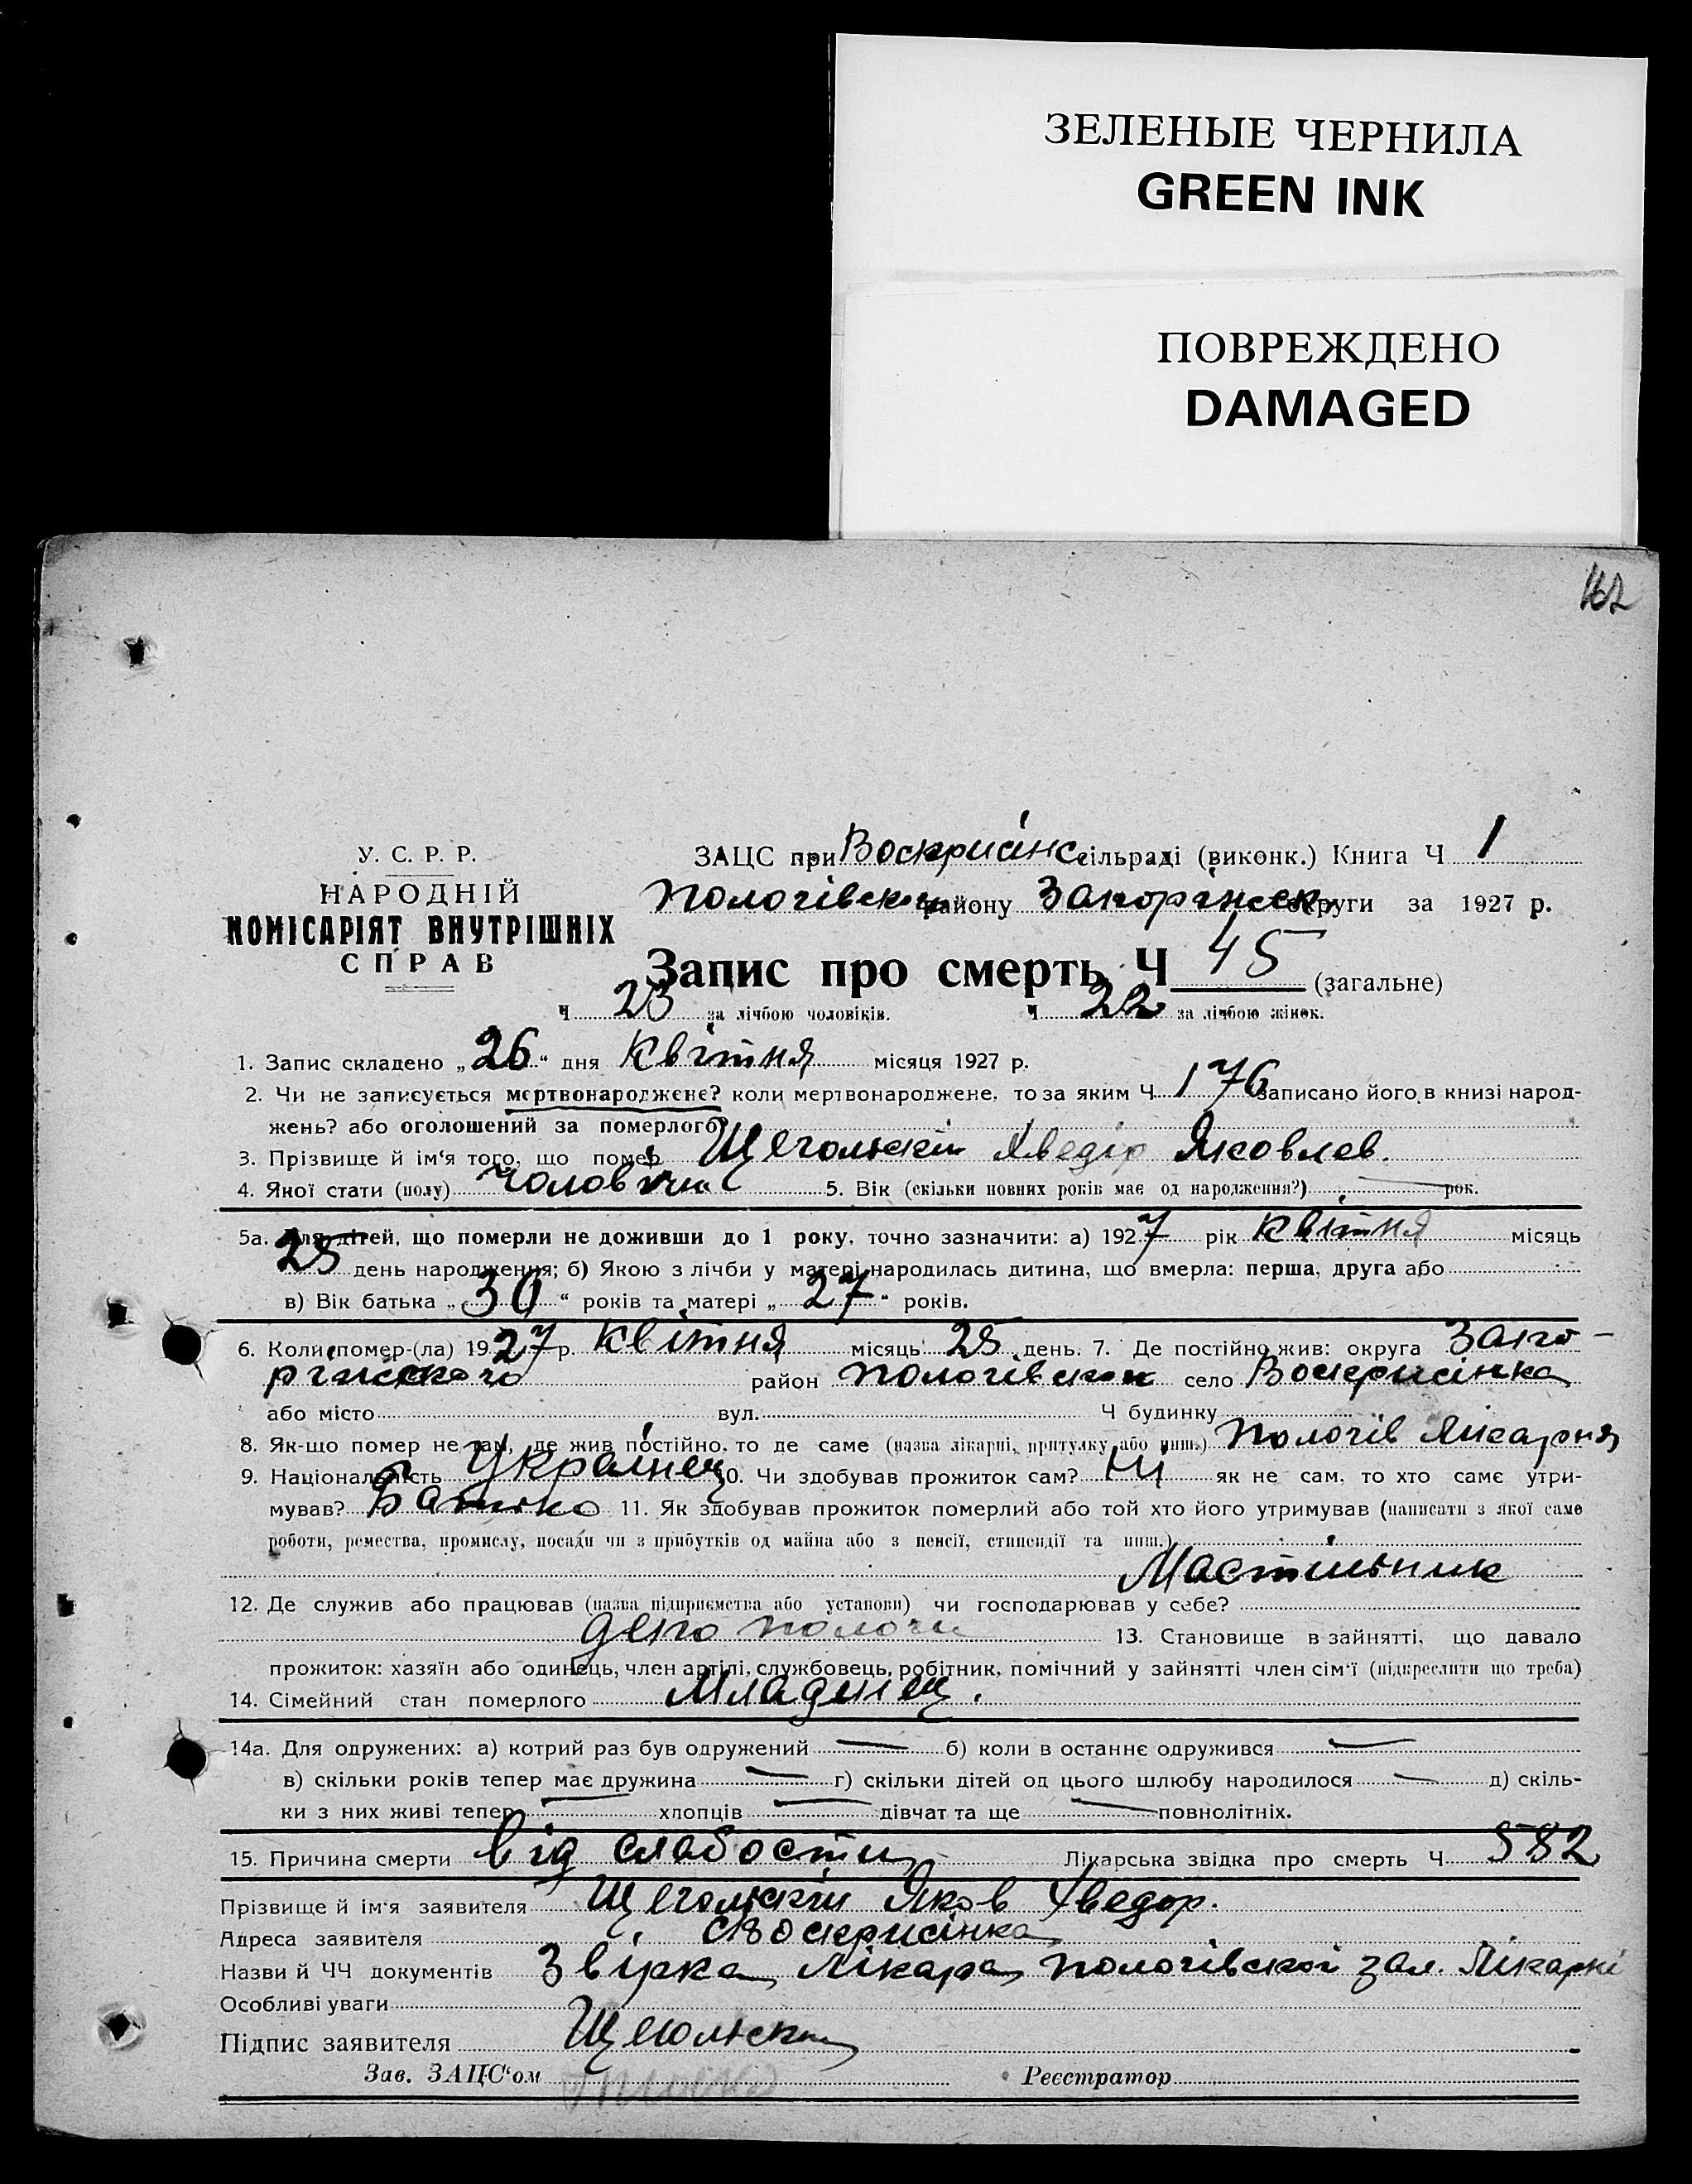 ЗЕЛЕНЫЕ ЧЕРНИЛА
GREEN INK
ПОВРЕЖДЕНО
DAMAGED
162
У. С. Р. Р.
НАРОДНІЙ
КОМІСАРІЯТ ВНУТРІШНІХ
СПРАВ
ЗАЦС при Воскрисінс сільраді (виконк.) Книга Ч 1
Пологівськ району Запоріжськ округи за 1927 р.
Запис про смерть Ч 45 (загальне)
Ч 23 за лічбою чоловіків. Ч 22 за лічбою жінок.
1. Запис складено „26“ дня Квітня місяця 1927 р.
2. Чи не записується мертвонароджене? коли мертвонароджене, то за яким Ч 176 записано його в книзі народ-
жень? або оголошений за померлого?
3. Прізвище й ім‘я того, що помер Щегольскій Хведір Яковлев.
4. Якої стати (полу) Чоловічи 5. Вік (скільки повних років має од народження?) — рок.
5а. Для дітей, що померли не доживши до 1 року, точно зазначити: а) 1927 рік Квітня місяць
25 день народження; б) Якою з лічби у матері народилась дитина, що вмерла: перша, друга або
в) Вік батька „30“ років та матері „27“ років.
6. Коли помер-(ла) 1927 р. Квітня місяць 25 день. 7. Де постійно жив: округа Запо-
ріжського район Пологівськ село Воскрисінка
або місто вул. Ч будинку
8. Як-що помер не там, де жив постійно, то де саме (назва лікарні, притулку або инш.) Пологів Лікарня
9. Національність Українец 10. Чи здобував прожиток сам? Ні як не сам, то хто саме утри-
мував? Батько 11. Як здобував прожиток померлий або той хто його утримував (написати з якої саме
роботи, ремества, промислу, посади чи з прибутків од майна або з пенсії, стипендії та инш.)
Мастильник
12. Де служив або працював (назва підприємства або установи) чи господарював у себе?
депо пологи 13. Становище в зайнятті, що давало
прожиток: хазяїн або одинець, член артілі, службовець, робітник, помічний у зайнятті член сім‘ї (підкреслити що треба)
14. Сімейний стан померлого Младенец.
14а. Для одружених: а) котрий раз був одружений — б) коли в останнє одружився —
в) скільки років тепер має дружина — г) скільки дітей од цього шлюбу народилося — д) скіль-
ки з них живі тепер — хлопців — дівчат та ще — повнолітніх.
15. Причина смерти від слабости Лікарська звідка про смерть Ч 582
Прізвище й ім‘я заявителя Щегольскій Яков Хведор.
Адреса заявителя с Воскрисінка
Назви й ЧЧ документів Звірка Лікара Пологівской зал. Лікарні
Особливі уваги
Підпис заявителя Щегольски
Зав. ЗАЦС‘ом Реєстратор